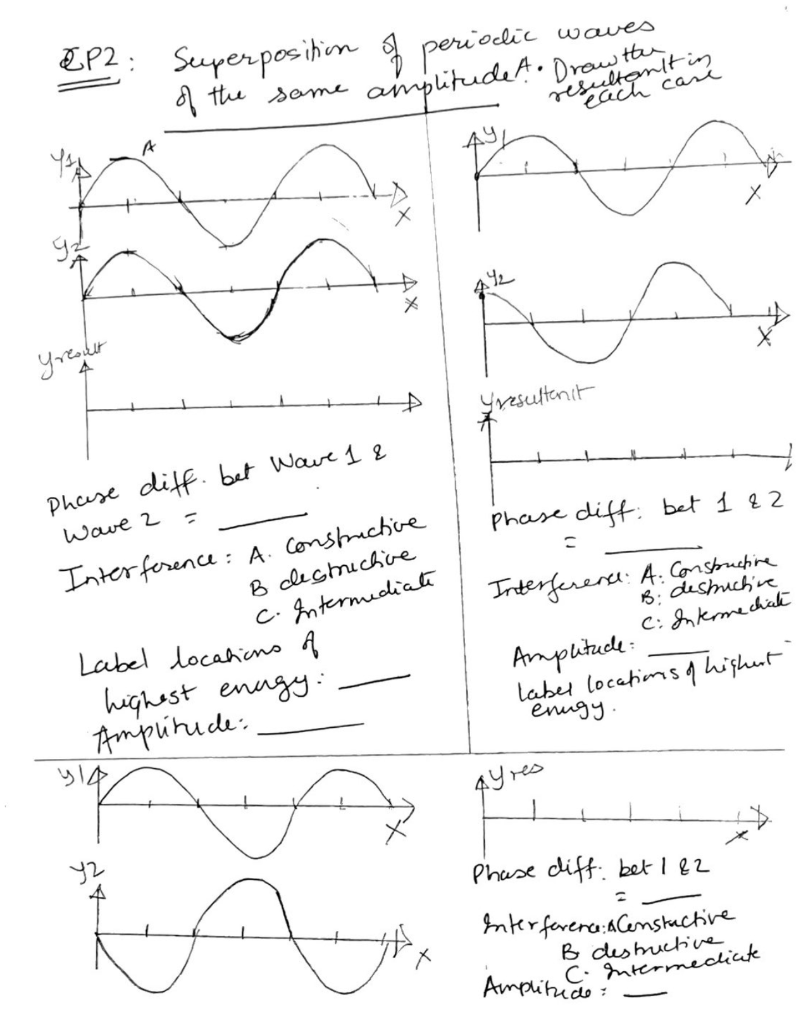 ICP2: Superposition of periodic waves
of the same amplitude A. Draw the
resultant in
each case
y1
A
X
y2
X
yresult
Phase diff. bet Wave 1 &
Wave 2 = ____
Interference: A. Constructive
B destructive
C. Intermediate
Label locations of
highest energy: ____
Amplitude: ____
y1
X
y2
X
yresultant
Phase diff: bet 1 & 2
= ____
Interference: A. Constructive
B: destructive
C: Intermediate
Amplitude: ____
Label locations of highest
energy.
y1
X
y2
X
yres
X
Phase diff: bet 1 & 2
= ____
Interference: A Constuctive
B destructive
C. Intermediate
Amplitude: ____